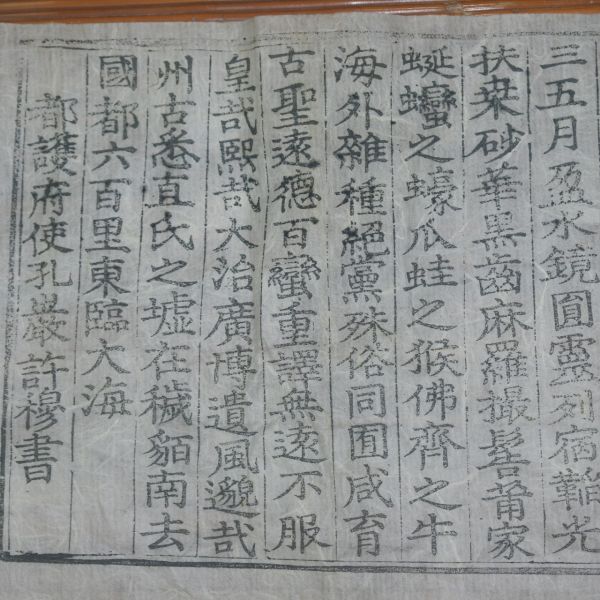 三五月盈水鏡圓靈列宿韜光
扶桑砂華黑齒麻羅撮髻莆家
蜒蠻之蠔爪蛙之猴佛齊之牛
海外雜種絕黨殊俗同囿咸育
古聖遠德百蠻重譯無遠不服
皇哉熙哉大治廣博遺風邈哉
州古悉直氏之墟在穢貊南去
國都六百里東臨大海
都護府使孔巖許穆書